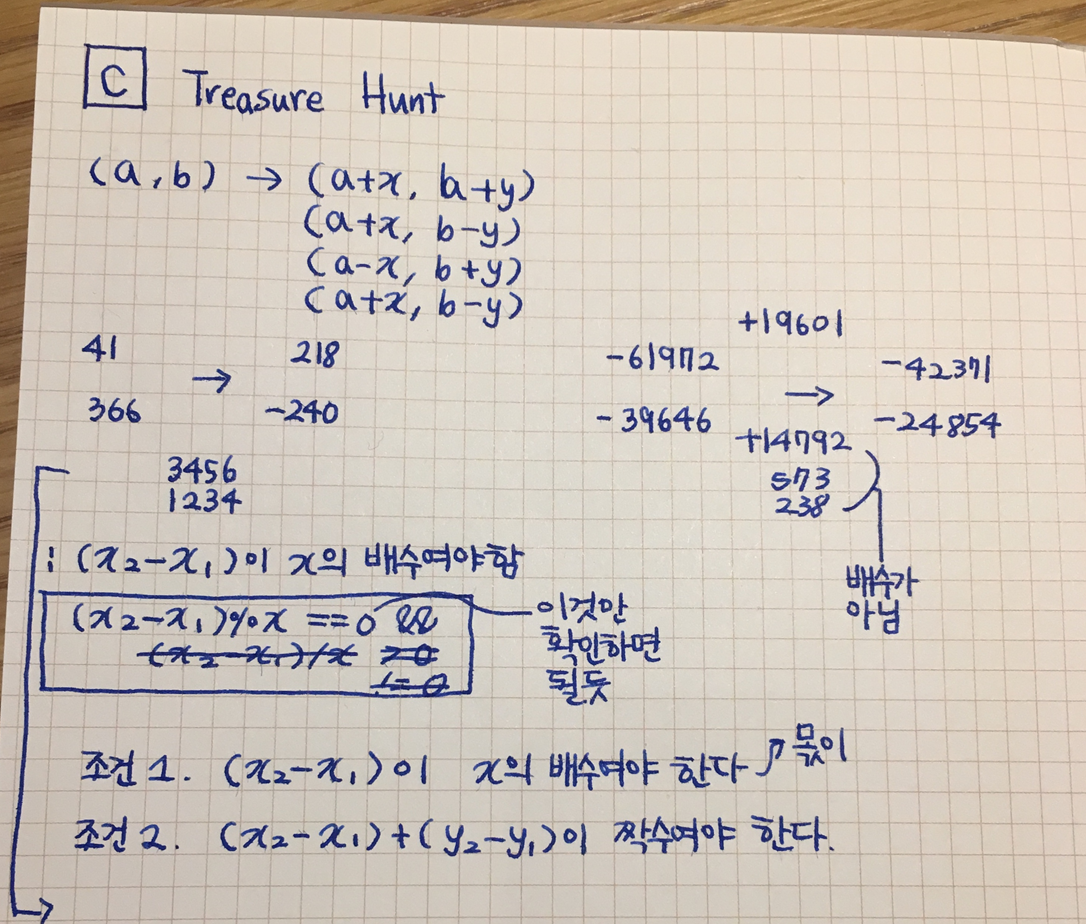 C Treasure Hunt
(a,b) → (a+x, b+y)
(a+x, b-y)
(a-x, b+y)
(a+x, b-y)
41 → 218
366 -240
3456
1234
+19601
-61972 → -42371
-39646 -24854
+14792
573
238
배수가
아님
: (x₂-x₁)이 x의 배수여야함
(x₂-x₁)%x ==0 &&
(x₂-x₁)/x >0
!= 0
이것만
확인하면
될듯
조건 1. (x₂-x₁)이 x의 배수여야 한다 ↗ 몫이
조건 2. (x₂-x₁)+(y₂-y₁)이 짝수여야 한다.